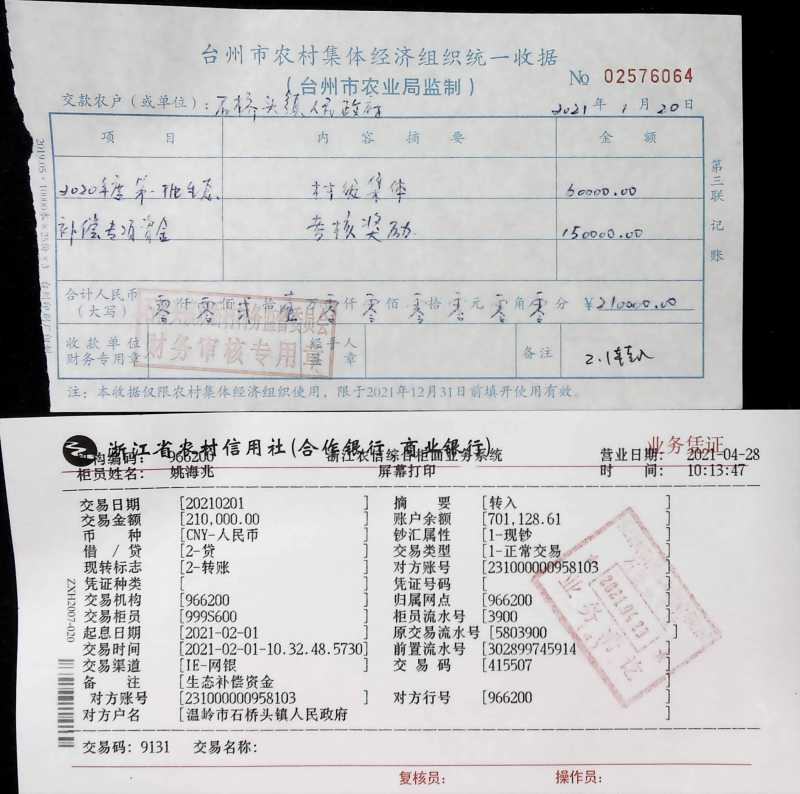 台州市农村集体经济组织统一收据
(台州市农业局监制)
№ 02576064
交款农户(或单位):石桥头镇人民政府 2021年1月20日
项 目 内 容 摘 要 金 额
2020年度第一批生态 村级集体 60000.00
补偿专项资金 考核奖励 150000.00
合计人民币(大写) 零仟零佰贰拾壹万零仟零佰零拾零元零角零分 ¥210000.00
收款单位财务专用章 经手人章 备注 2.1转入
财务审核专用章
注:本收据仅限农村集体经济组织使用,限于2021年12月31日前填开使用有效。
第三联 记账
浙江省农村信用社(合作银行 商业银行) 业务凭证
机构编码: 966200 浙江农信综合柜面业务系统 营业日期: 2021-04-28
柜员姓名: 姚海兆 屏幕打印 时 间: 10:13:47
交易日期 [20210201 ] 摘 要 [转入 ]
交易金额 [210,000.00 ] 账户余额 [701,128.61 ]
币 种 [CNY-人民币 ] 钞汇属性 [1-现钞 ]
借 / 贷 [2-贷 ] 交易类型 [1-正常交易 ]
现转标志 [2-转账 ] 对方账号 [231000000958103 ]
凭证种类 [ ] 凭证号码 [ ]
交易机构 [966200 ] 归属网点 [966200 ]
交易柜员 [999S600 ] 柜员流水号 [3900 ]
起息日期 [2021-02-01 ] 原交易流水号 [5803900 ]
交易时间 [2021-02-01-10.32.48.5730] 前置流水号 [302899745914 ]
交易渠道 [IE-网银 ] 交 易 码 [415507 ]
备 注 [生态补偿资金
对方账号 [231000000958103 ] 对方行号 [966200 ]
对方户名 [温岭市石桥头镇人民政府 ]
交易码: 9131 交易名称:
复核员: 操作员:
ZXH2007-020